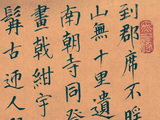 到郡席不暇
山無十里遺
南朝寺同登
畫戟紺宇
髯古逈人